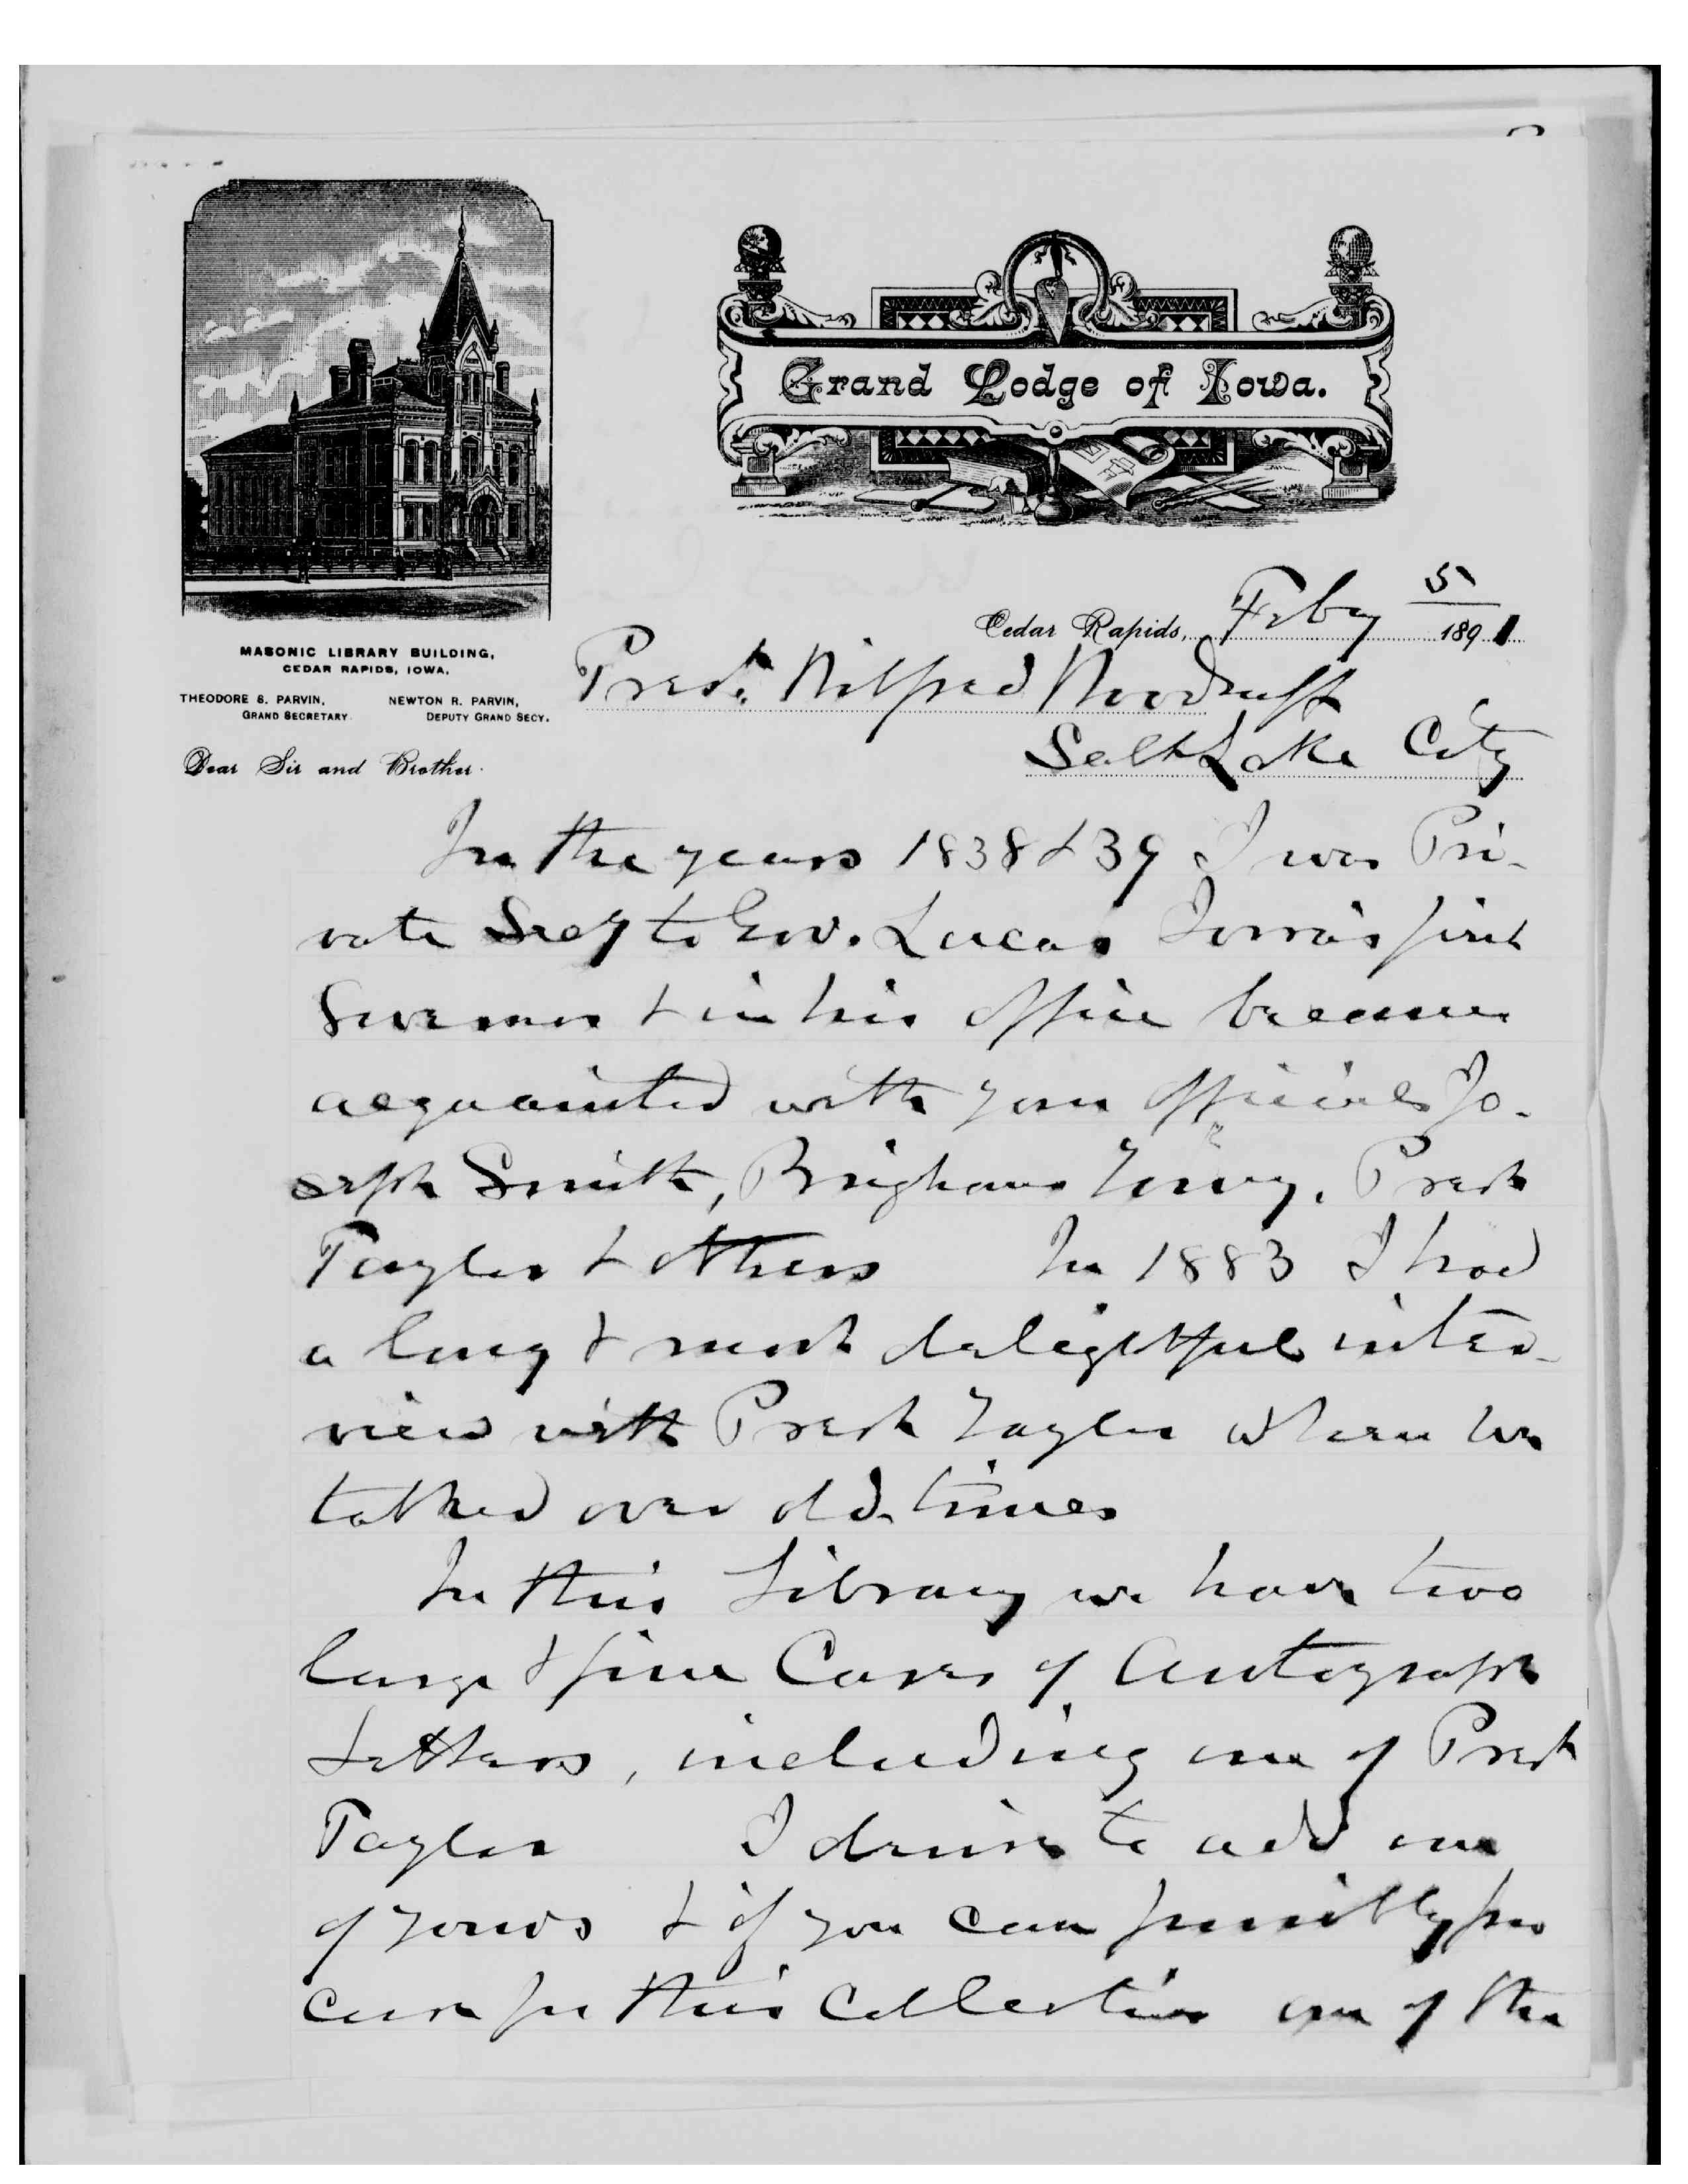 Grand Lodge of Iowa.
Cedar Rapids, Feby 5 1891
MASONIC LIBRARY BUILDING,
CEDAR RAPIDS, IOWA.
THEODORE S. PARVIN, NEWTON R. PARVIN,
GRAND SECRETARY. DEPUTY GRAND SECY.
Prest. Wilfred Woodruff
Salt Lake City
Dear Sir and Brother.
In the years 1838 & 39 I was Pri-
vate Secy to Gov. Lucas Iowa's first
Governor & in his office became
acquainted with your officials Jo-
seph Smith, Brigham Young, Prest
Taylor & others In 1883 I had
a long & most delightful inter-
view with Prest Taylor when we
talked over old times
In this Library we have two
large & fine Cases of Autograph
Letters, including one of Prest
Taylor I desire to add one
of yours & if you can possibly pro
cure for this Collection one of the